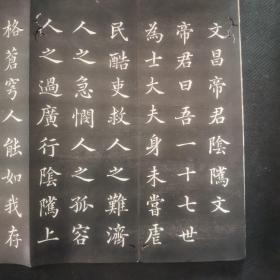 文昌帝君陰騭文
帝君曰吾一十七世
為士大夫身未嘗虐
民酷吏救人之難濟
人之急憫人之孤容
人之過廣行陰騭上
格蒼穹人能如我存